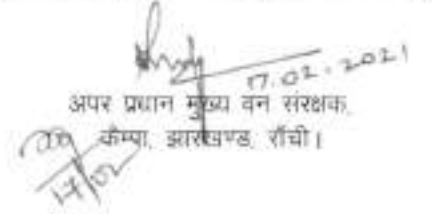 17.02.2021
अपर प्रधान मुख्य वन संरक्षक,
कैम्पा, झारखण्ड, राँची।
17/02